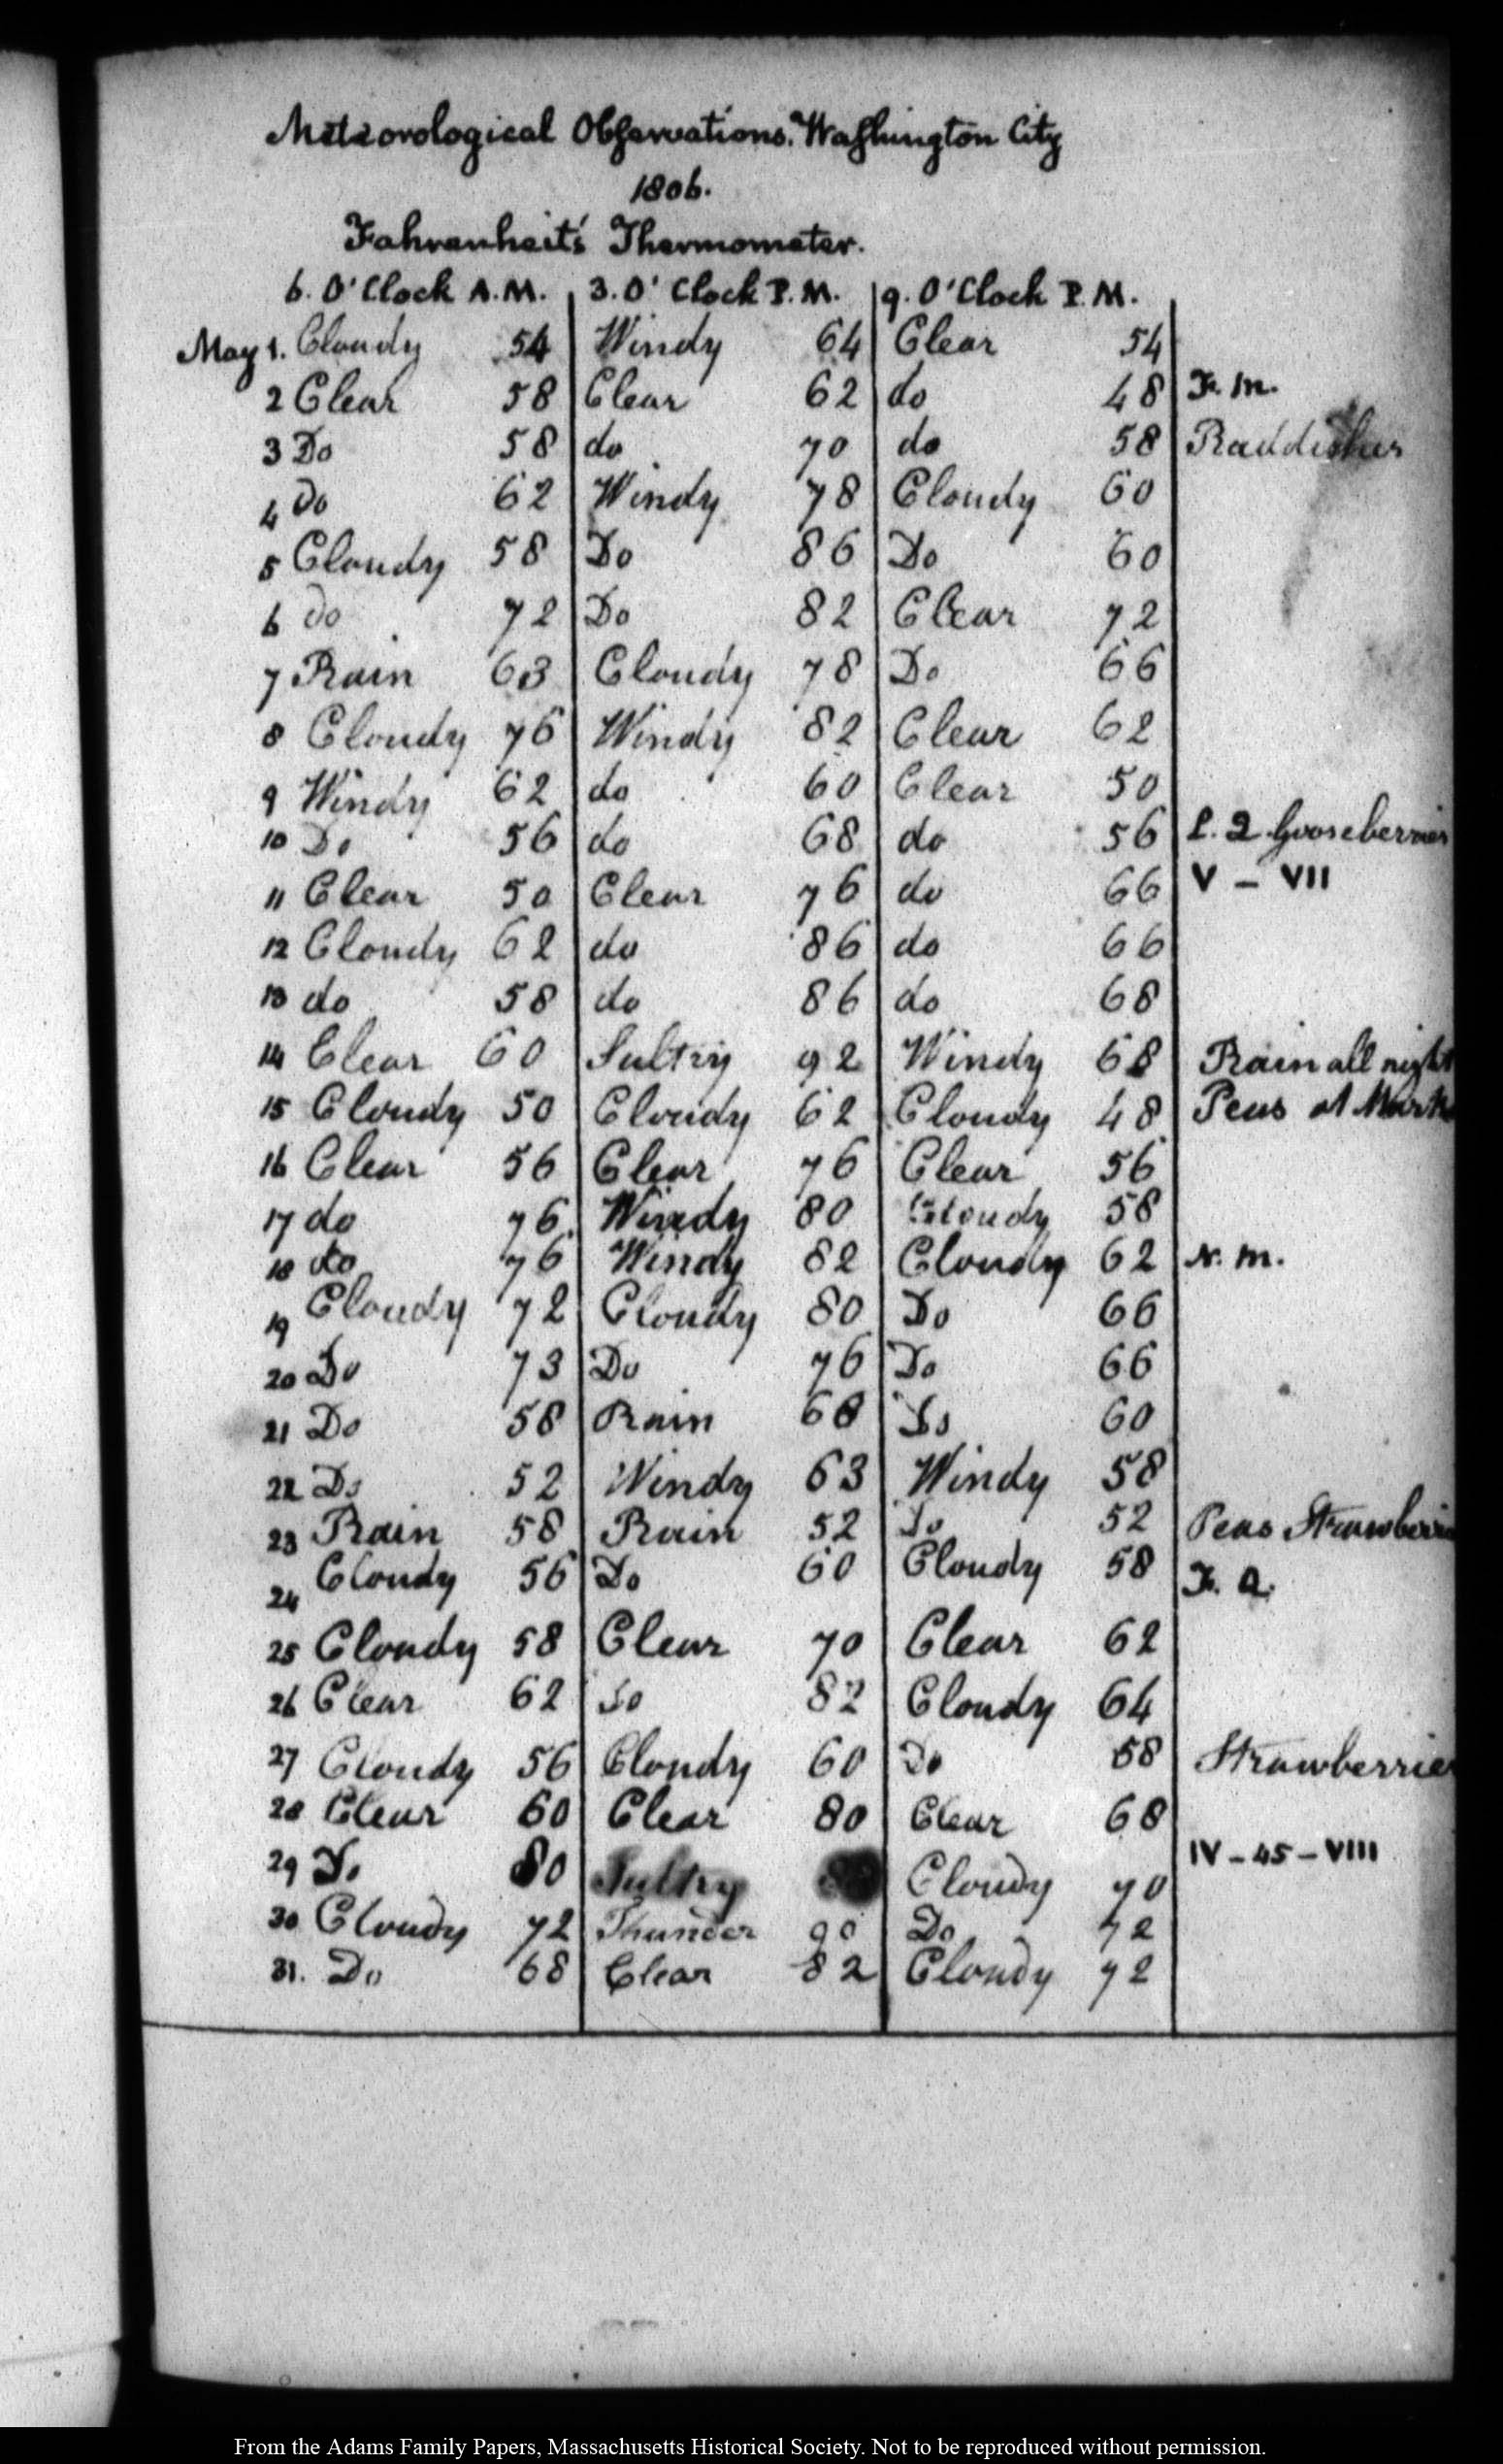 Meteorological Observations. Washington City
1806.
Fahrenheit's Thermometer.
6. O'Clock A.M. 3. O'Clock P.M. 9. O'Clock P.M.
May 1. Cloudy 54 Windy 64 Clear 54
2 Clear 58 Clear 62 do 48 F. M.
3 Do 58 do 70 do 58 Raddishes
4 Do 62 Windy 78 Cloudy 60
5 Cloudy 58 Do 86 Do 60
6 do 72 Do 82 Clear 72
7 Rain 63 Cloudy 78 Do 66
8 Cloudy 76 Windy 82 Clear 62
9 Windy 62 do 60 Clear 50
10 Do 56 do 68 do 56 L. Q. Gooseberries
11 Clear 50 Clear 76 do 66 V – VII
12 Cloudy 62 do 86 do 66
13 do 58 do 86 do 68
14 Clear 60 Sultry 92 Windy 68 Rain all night
15 Cloudy 50 Cloudy 62 Cloudy 48 Peas at
16 Clear 56 Clear 76 Clear 56
17 do 76 Windy 80 Cloudy 58
18 do 76 Windy 82 Cloudy 62 N. M.
19 Cloudy 72 Cloudy 80 Do 66
20 Do 73 Do 76 Do 66
21 Do 58 Rain 68 Do 60
22 Do 52 Windy 63 Windy 58
23 Rain 58 Rain 52 Do 52 Peas
24 Cloudy 56 Do 60 Cloudy 58 F. Q.
25 Cloudy 58 Clear 70 Clear 62
26 Clear 62 Do 82 Cloudy 64
27 Cloudy 56 Cloudy 60 Do 58 Strawberries
28 Clear 60 Clear 80 Clear 68
29 Do 80 Sultry Cloudy 70 IV – 45 – VIII
30 Cloudy 72 Thunder 90 Do 72
31. Do 68 Clear 82 Cloudy 72
From the Adams Family Papers, Massachusetts Historical Society. Not to be reproduced without permission.